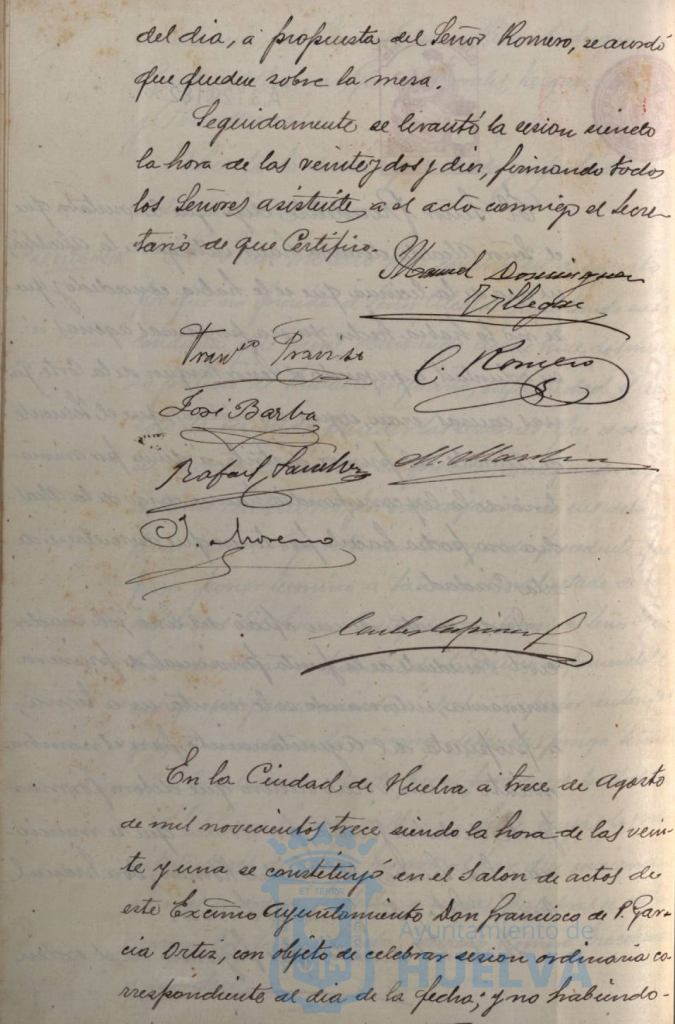 del dia, á propuesta del Señor Romero, se acordó
que quedase sobre la mesa.
Seguidamente se levantó la sesion siendo
la hora de las veinte y dos y diez, firmando todos
los Señores asistente, a el acto conmigo el Secre-
tario de que Certifico.
Manuel Dominguez
Villegas
Franco
C. Romero
José Barba
Rafael Sanchez
J. Moreno
En la Ciudad de Huelva á trece de Agosto
de mil novecientos trece siendo la hora de las vein-
te y una se constituyó en el Salon de actos de
este Excmo Ayuntamiento Don Francisco de P. Gar-
cia Ortiz, con objeto de celebrar sesion ordinaria co-
rrespondiente al dia de la fecha; y no habiendo-
Ayuntamiento de
HUELVA